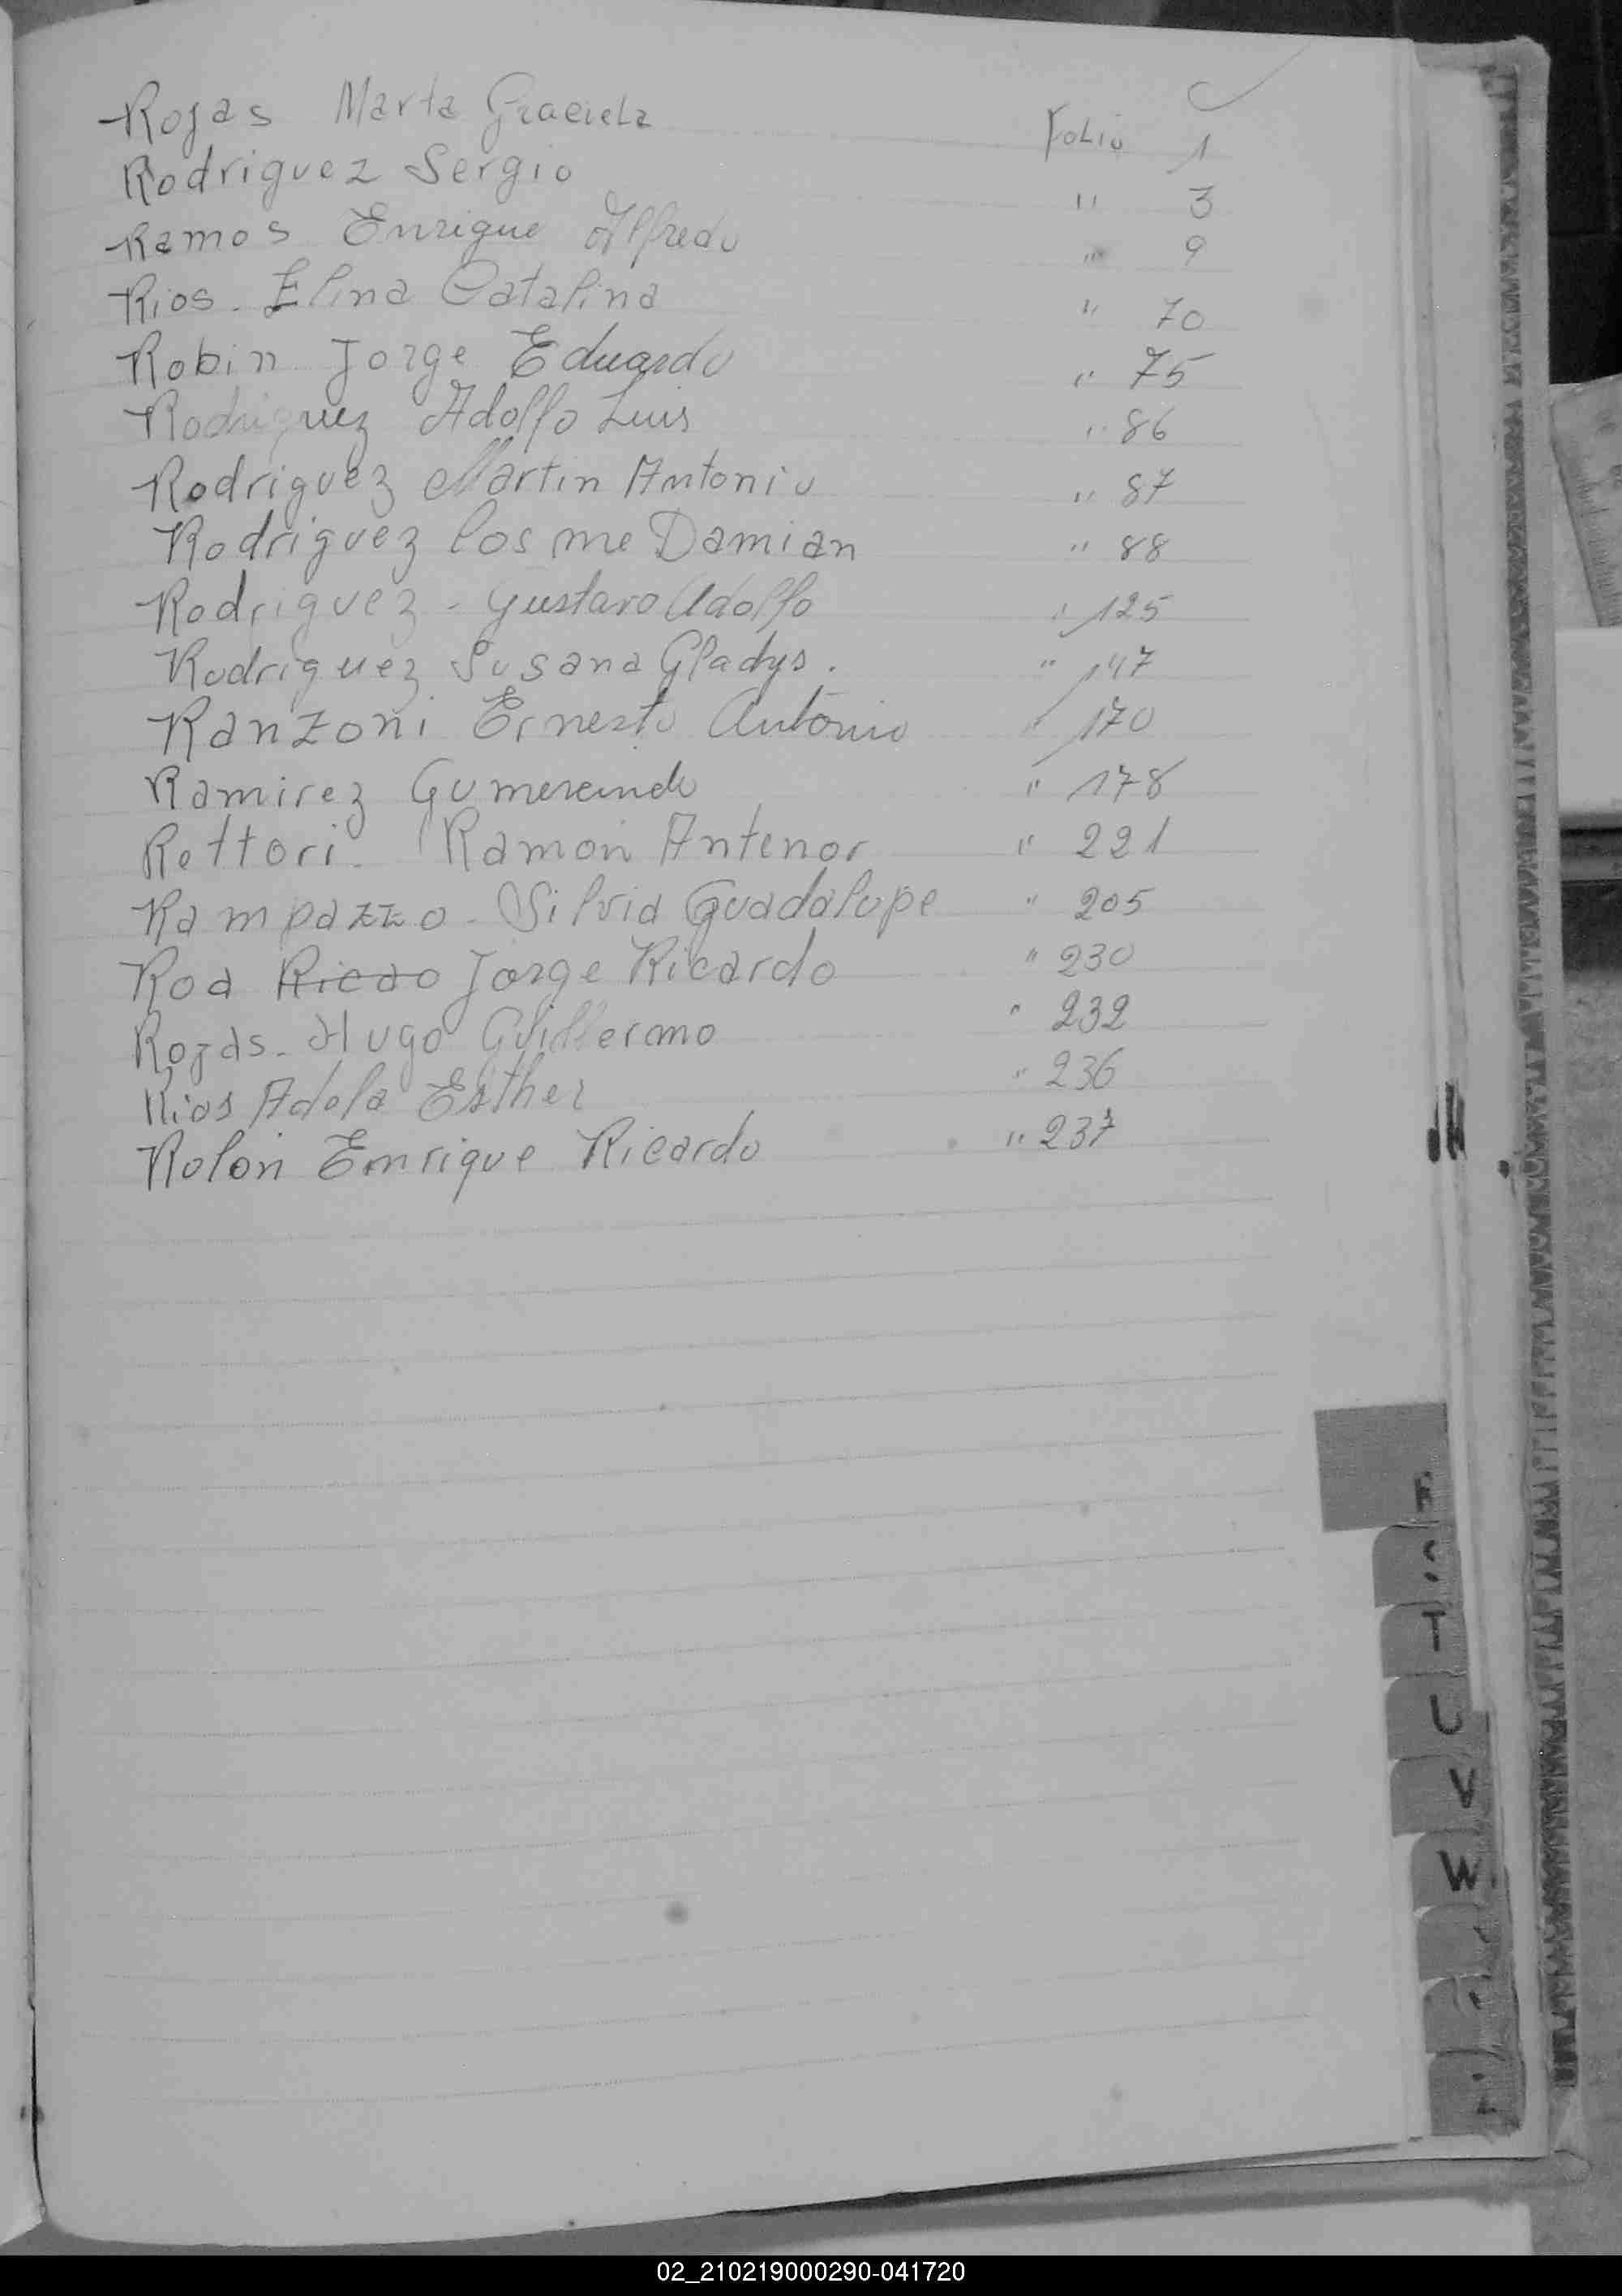 Rojas Marta Graciela Folio 1
Rodriguez Sergio " 3
Ramos Enrique Alfredo " 9
Rios - Elina Catalina " 70
Robin Jorge Eduardo " 75
Rodriguez Adolfo Luis " 86
Rodriguez Martin Antonio " 87
Rodriguez Cosme Damian " 88
Rodriguez - Gustavo Adolfo " 125
Rodriguez Susana Gladys. " 147
Ranzoni Ernesto Antonio " 170
Ramirez Gumercindo " 178
Rettori - Ramon Antenor " 221
Rampazzo - Silvia Guadalupe " 205
Roa Ricao Jorge Ricardo " 230
Rojas - Hugo Guillermo " 232
Rios Adela Esther " 236
Rolon Enrique Ricardo " 237
R
S
T
U
V
W
02_210219000290-041720